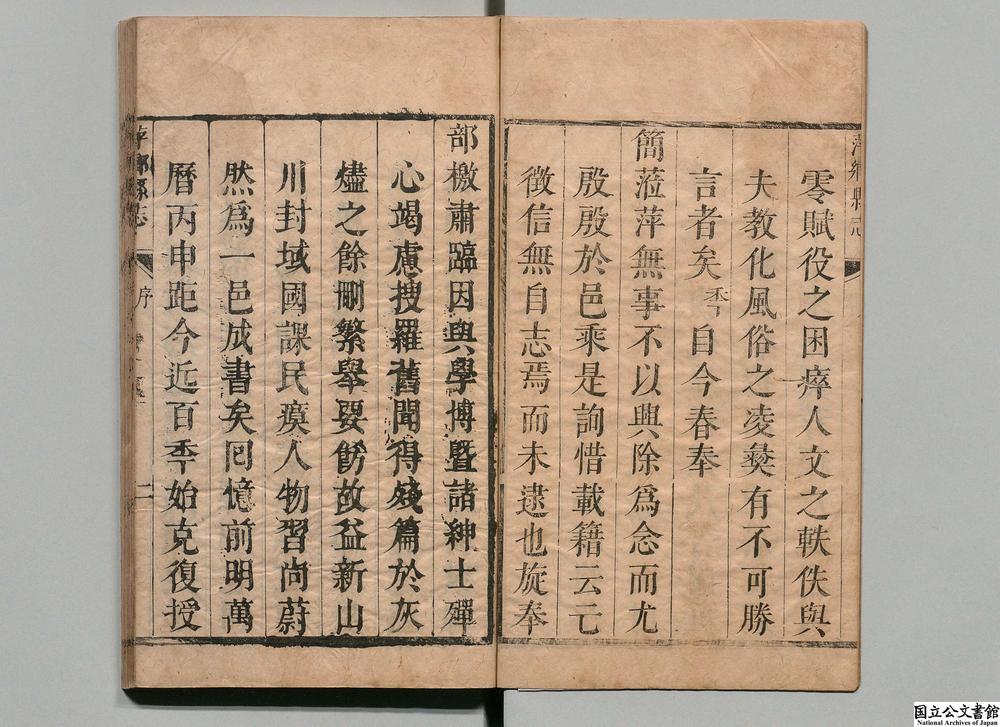 萍鄉縣志
零賦役之困瘁人文之軼佚與
夫教化風俗之凌彜有不可勝
言者矣 自今春奉
簡蒞萍無事不以興除爲念而尤
殷殷於邑乘是詢惜載籍云亡
徵信無自志焉而未逮也旋奉
部檄肅臨因與學博暨諸紳士殫
心竭慮搜羅舊聞得殘篇於灰
燼之餘刪繁舉要飭故益新山
川封域國課民瘼人物習尚蔚
然爲一邑成書矣囘憶前明萬
曆丙申距今近百秊始克復授
萍鄉縣志
序
二
国立公文書館
National Archives of Japan